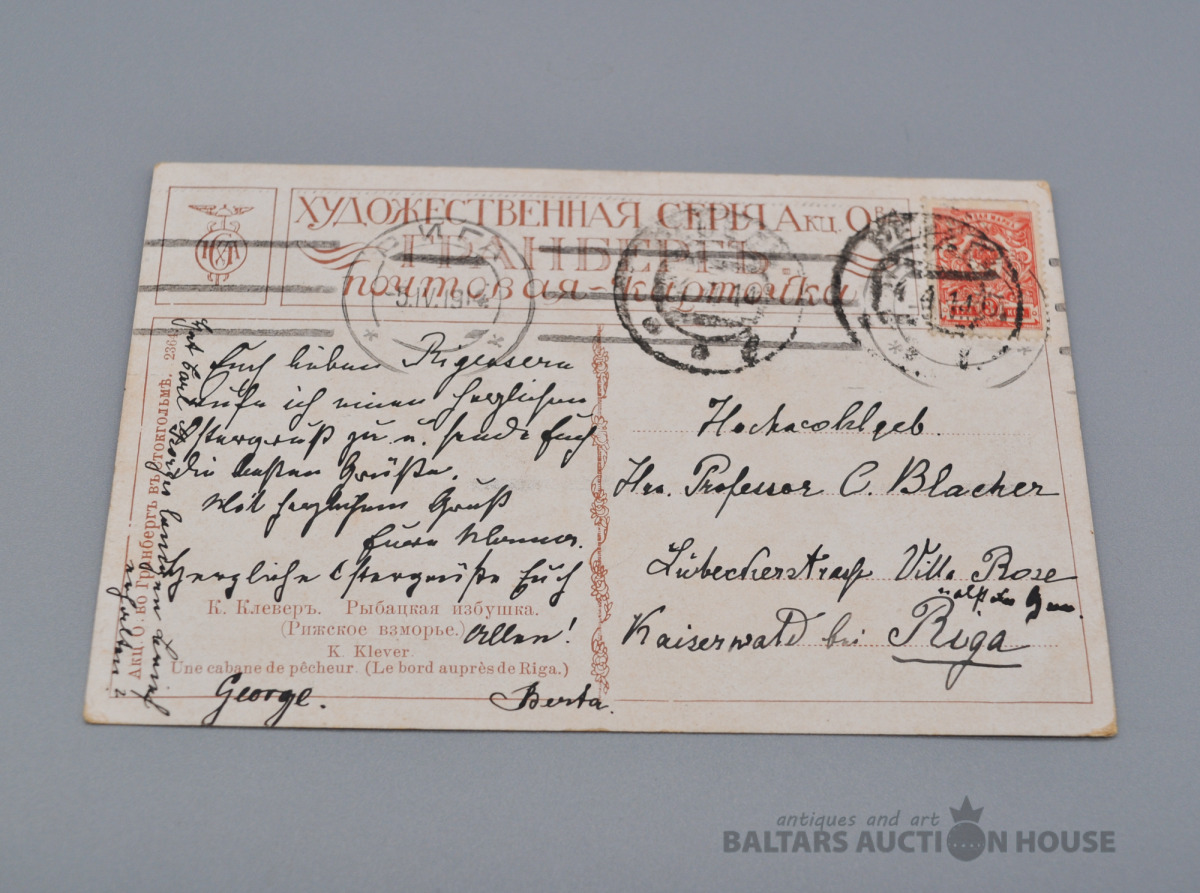 ХУДОЖЕСТВЕННАЯ СЕРІЯ АКЦ. О-ВА
ГРАНБЕРГЪ.
почтовая-карточка
РИГА
5.IV.1914
Euch lieben Rigensern
rufe ich einen herzlichen
Ostergruß zu u. sende Euch
die besten Grüße.
Mit herzlichem Gruß
Eure
Herzliche Ostergrüße Euch
Allen!
George.
Berta.
К. Клеверъ. Рыбацкая избушка.
(Рижское взморье.)
K. Klever.
Une cabane de pêcheur. (Le bord auprès de Riga.)
Акц. О-во Гранбергъ въ Стокгольмѣ.
Hochwohlgeb.
Hrn. Professor C. Blacher
Lübeckerstrasse Villa Rose
Kaiserwald bei Riga
antiques and art
BALTARS AUCTION HOUSE